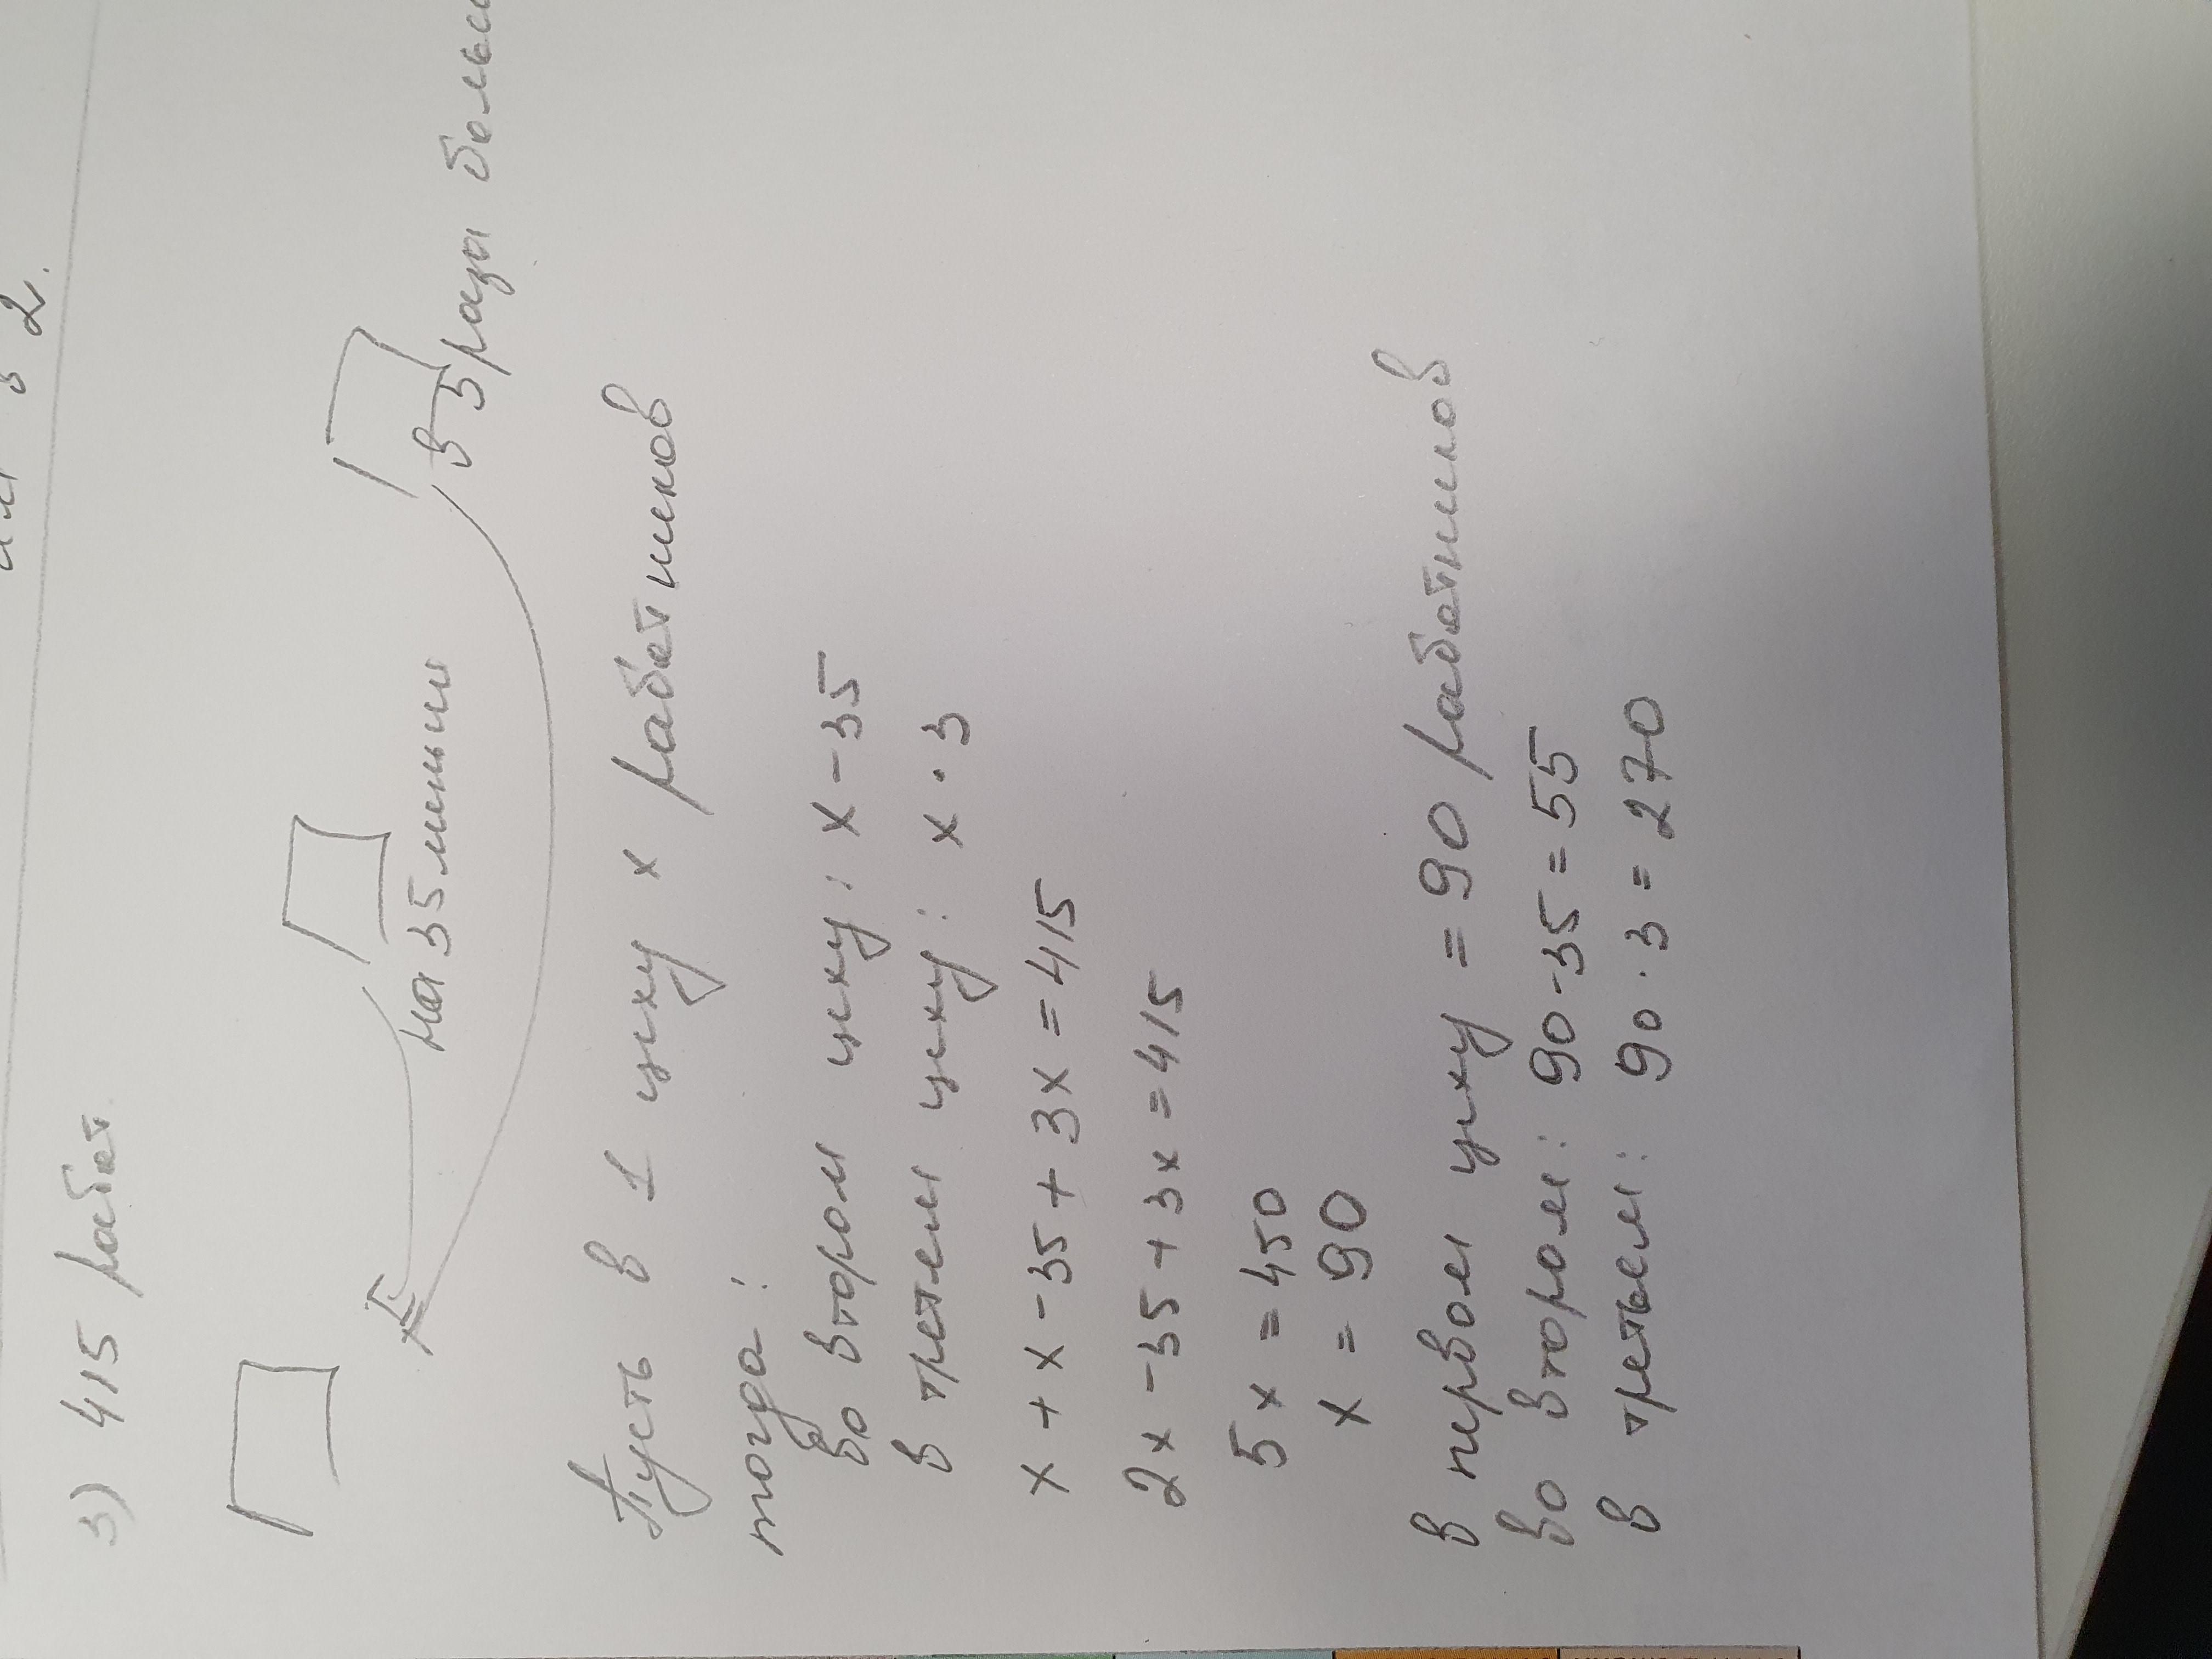 2.
3) 415 работ.
на 35 меньше
в 3 раза больш
Пусть в 1 цеху х работников
тогда:
во втором цеху: х - 35
в третем цеху: х · 3
х + х - 35 + 3х = 415
2х - 35 + 3х = 415
5х = 450
х = 90
в первом цеху = 90 работников
во втором: 90 - 35 = 55
в третьем: 90 · 3 = 270